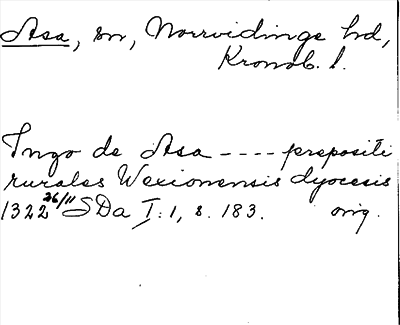 Asa, sn, Norrvidinge hd,
Kronob. l.
Ingo de Asa ---- prepositi
rurales Wexionensis dyocesis
1322 26/11 SDa I:1, s. 183. orig.